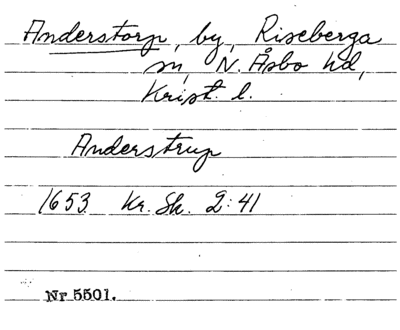 Anderstorp, by, Riseberga
sn, N. Åsbo hd,
Krist. l.
Anderstrup
1653 Kr. Sk. 2:41
Nr 5501.